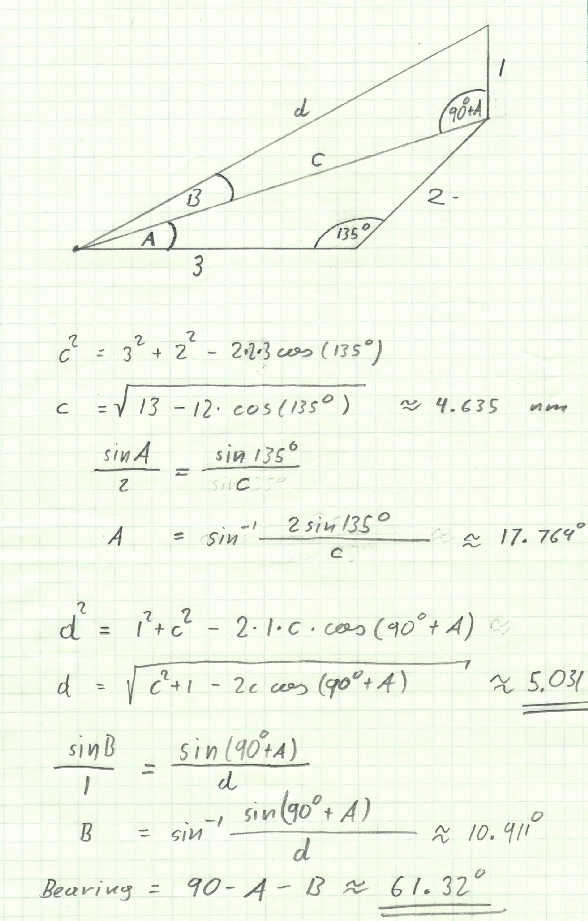 1
d
90°+A
C
B
2
A
135°
3
c² = 3² + 2² - 2·2·3 cos (135°)
c = √(13 - 12 · cos (135°)) ≈ 4.635 nm
sin A / 2 = sin 135° / c
A = sin⁻¹ 2 sin 135° / c ≈ 17.764°
d² = 1² + c² - 2·1·c·cos (90° + A)
d = √(c² + 1 - 2c cos (90° + A)) ≈ 5.031
sin B / 1 = sin (90° + A) / d
B = sin⁻¹ sin (90° + A) / d ≈ 10.911°
Bearing = 90 - A - B ≈ 61.32°